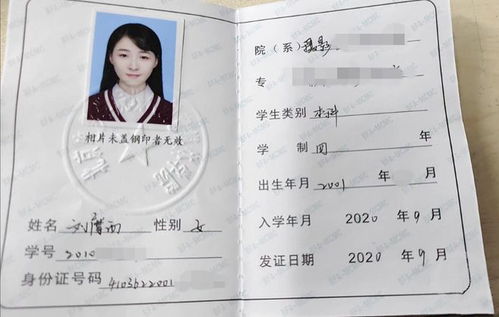 相片未盖钢印者无效
姓名 刘 性别 女
学号 2010
身份证号码 4103622001
院（系） 摄影
专
学生类别 本科
学 制 四 年
出生年月 2001 年 月
入学年月 2020 年 9 月
发证日期 2020 年 9 月